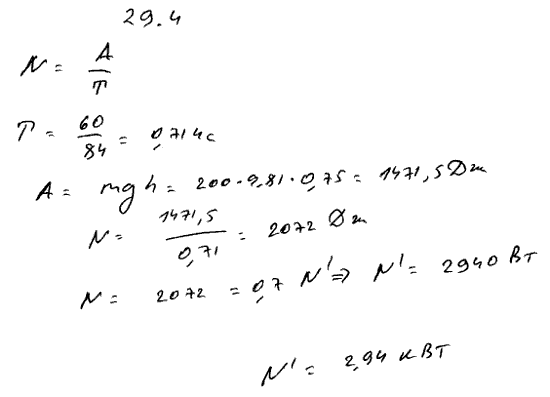 29.4
N = A/T
T = 60/84 = 0,714с
A = mgh = 200·9,81·0,75 = 1471,5 Дж
N = 1471,5/0,71 = 2072 Дж
N = 2072 = 0,7 N' ⇒ N' = 2940 Вт
N' = 2,94 кВт